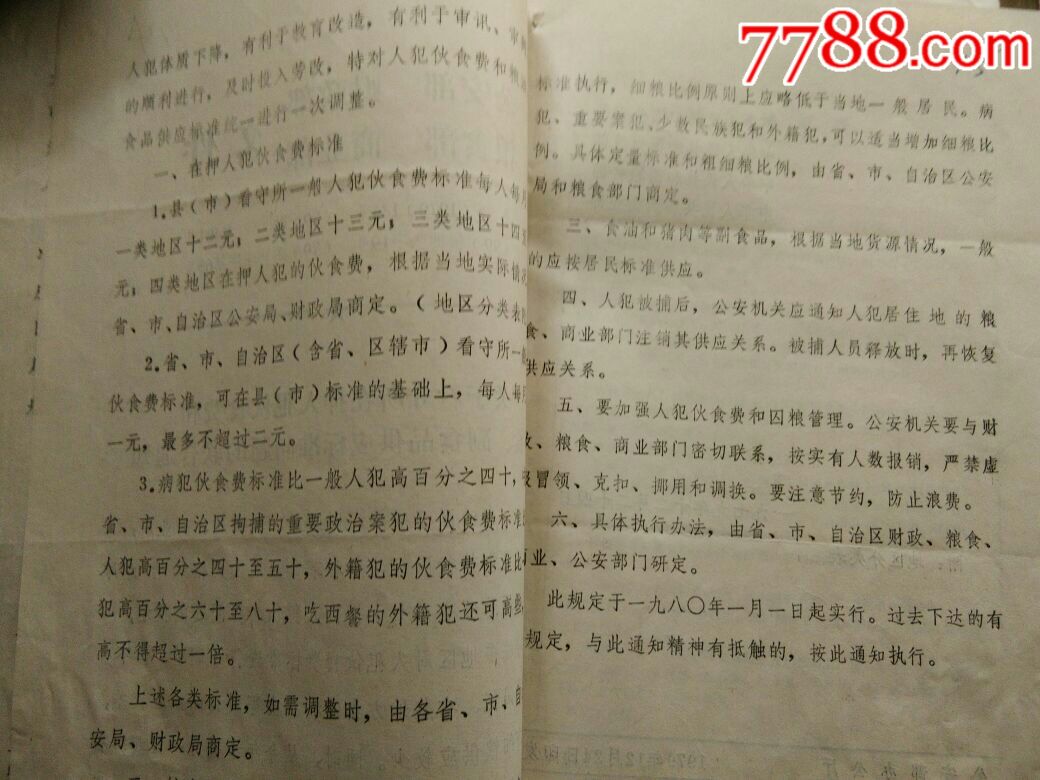 7788.com
人犯体质下降，有利于教育改造，有利于审讯、审
的顺利进行，及时投入劳改，特对人犯伙食费和粮
食品供应标准统一进行一次调整。
一、在押人犯伙食费标准
1.县（市）看守所一般人犯伙食费标准每人每月
一类地区十二元；二类地区十三元；三类地区十四
元；四类地区在押人犯的伙食费，根据当地实际情况
省、市、自治区公安局、财政局商定。（地区分类表附
2.省、市、自治区（含省、区辖市）看守所一般
伙食费标准，可在县（市）标准的基础上，每人每月
一元，最多不超过二元。
3.病犯伙食费标准比一般人犯高百分之四十，
省、市、自治区拘捕的重要政治案犯的伙食费标准
人犯高百分之四十至五十，外籍犯的伙食费标准比
犯高百分之六十至八十，吃西餐的外籍犯还可高些
高不得超过一倍。
上述各类标准，如需调整时，由各省、市、自
安局、财政局商定。
标准执行，细粮比例原则上应略低于当地一般居民。病
犯、重要案犯、少数民族犯和外籍犯，可以适当增加细粮比
例。具体定量标准和粗细粮比例，由省、市、自治区公安
局和粮食部门商定。
三、食油和猪肉等副食品，根据当地货源情况，一般
的应按居民标准供应。
四、人犯被捕后，公安机关应通知人犯居住地的粮
食、商业部门注销其供应关系。被捕人员释放时，再恢复
供应关系。
五、要加强人犯伙食费和囚粮管理。公安机关要与财
政、粮食、商业部门密切联系，按实有人数报销，严禁虚
报冒领、克扣、挪用和调换。要注意节约，防止浪费。
六、具体执行办法，由省、市、自治区财政、粮食、
商业、公安部门研定。
此规定于一九八〇年一月一日起实行。过去下达的有
规定，与此通知精神有抵触的，按此通知执行。